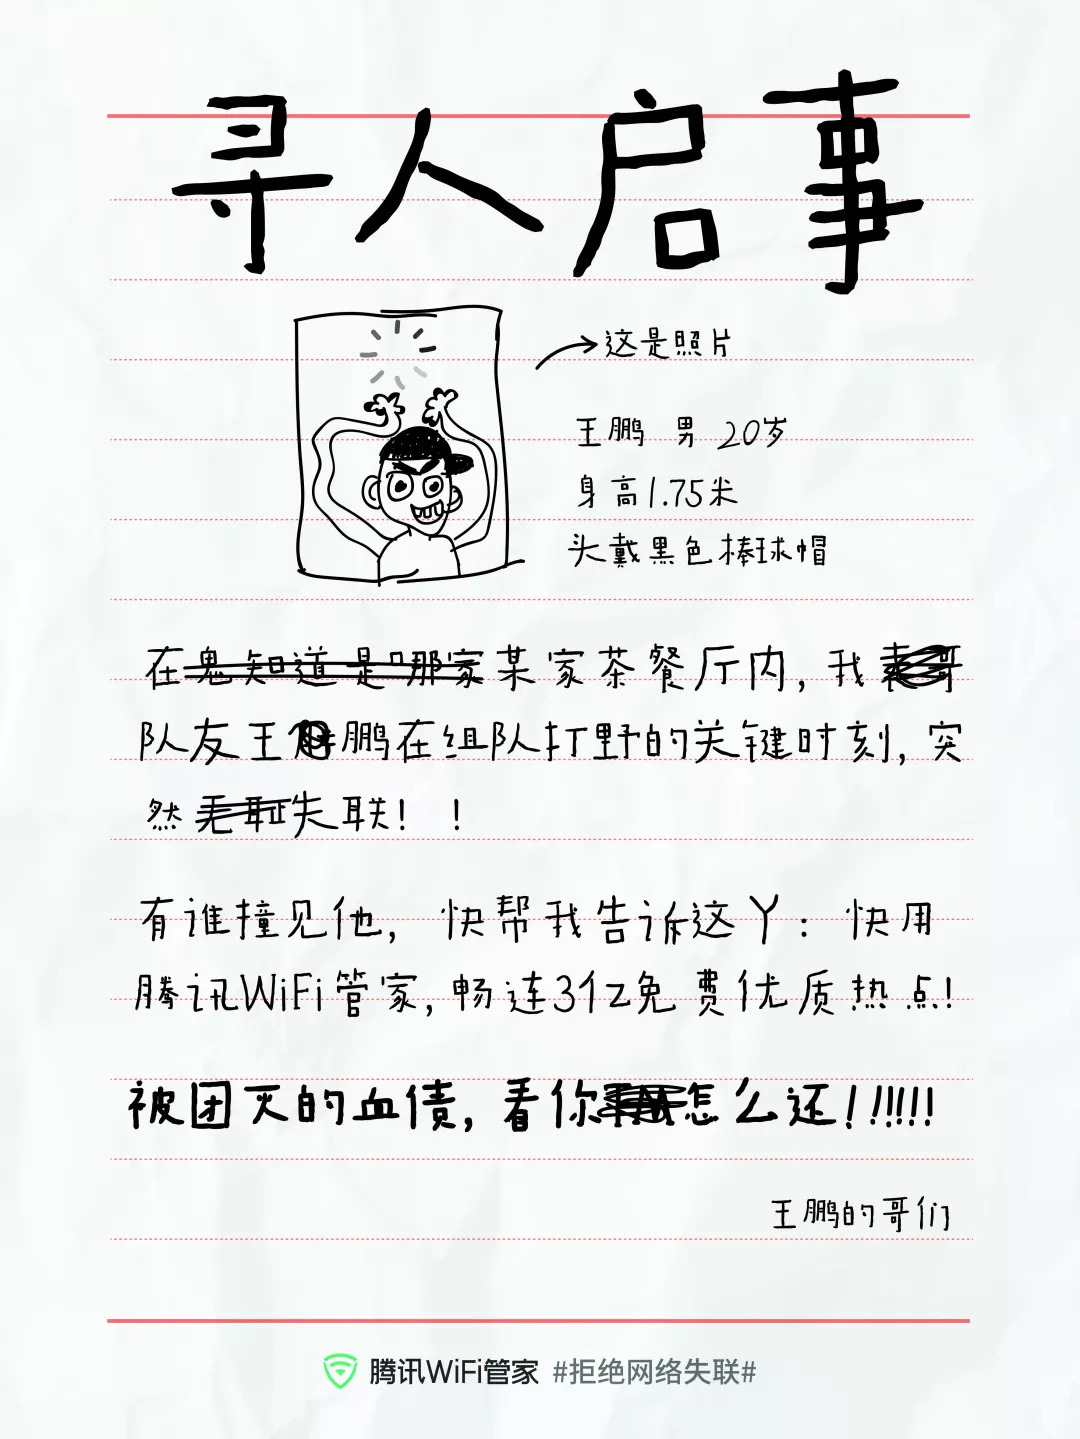 寻人启事
这是照片
王鹏 男 20岁
身高1.75米
头戴黑色棒球帽
在鬼知道是哪家某家茶餐厅内,我
队友王鹏在组队打野的关键时刻,突
然无耻失联! !
有谁撞见他, 快帮我告诉这丫: 快用
腾讯WiFi管家,畅连3亿免费优质热点!
被团灭的血债,看你怎么还!!!!!!
王鹏的哥们
腾讯WiFi管家 #拒绝网络失联#